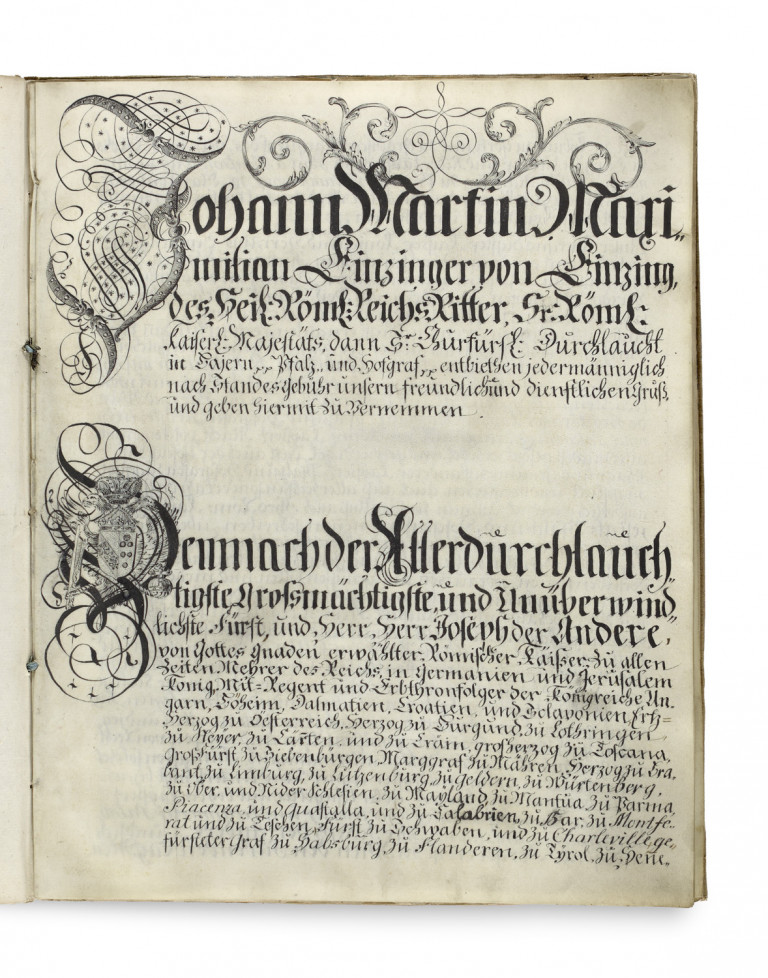 Johann Martin Maxi„
milian Einzinger von Einzing,
des Heil: Röml: Reichs Ritter, Sr. Röml:
Kaiserl: Majestäts, dann Sr Churfürsl: Durchlaucht
in Bayern „ Pfalz„ und Hofgraf „ entbiethen jedermänniglich
nach Standes Gebühr unsern freundlich und dienstlichen Gruß,
und geben hiermit zu Vernemmen.
Demnach der Allerdurchlauch„
tigste, Großmächtigste, und Unüberwind„
lichste Fürst, und Herr, Herr Joseph der Andere,
von Gottes Gnaden erwählter Römischer Kaiser, zu allen
Zeiten Mehrer des Reichs, in Germanien und Jerusalem
König, Mit-Regent und Erbthronfolger der Königreiche Un„
garn, Böheim, Dalmatien, Croatien, und Sclavonien Ertz-
Herzog zu Oesterreich, Herzog zu Burgund, zu Lothringen
zu Steyer, zu Cärnten, und zu Crain, großherzog zu Toscana,
GroßFürst zu Siebenbürgen, Marggraf zu Mähren, Herzog zu Bra„
bant, zu Limburg, zu Lützenburg, zu Geldern, zu Würtenberg,
zu Ober, und Nider Schlesien, zu Mayland, zu Mantua, zu Parma,
Piacenza, und Guastalla, und zu Calabrien, zu Bar, zu Montfe„
rat und zu Teschen, Fürst zu Schwaben, und zu Charleville, ge„
fürsteter Graf zu Habsburg, zu Flanderen, zu Tyrol, zu Hene„